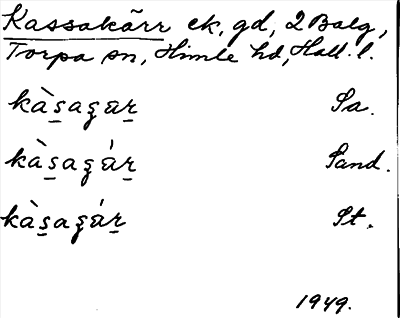 Kassakärr ek, gd, 2 Balg,
Torpa sn, Himle hd, Hall. l.
kàs̱aʒár̲ Sa.
kàs̱aʒár̲ Sand.
kàs̱aʒár̲ St.
1949.